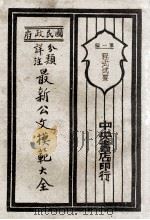 國民政府
分類
詳注
最新公文模範大全
第一編
程式述要
中央書店印行